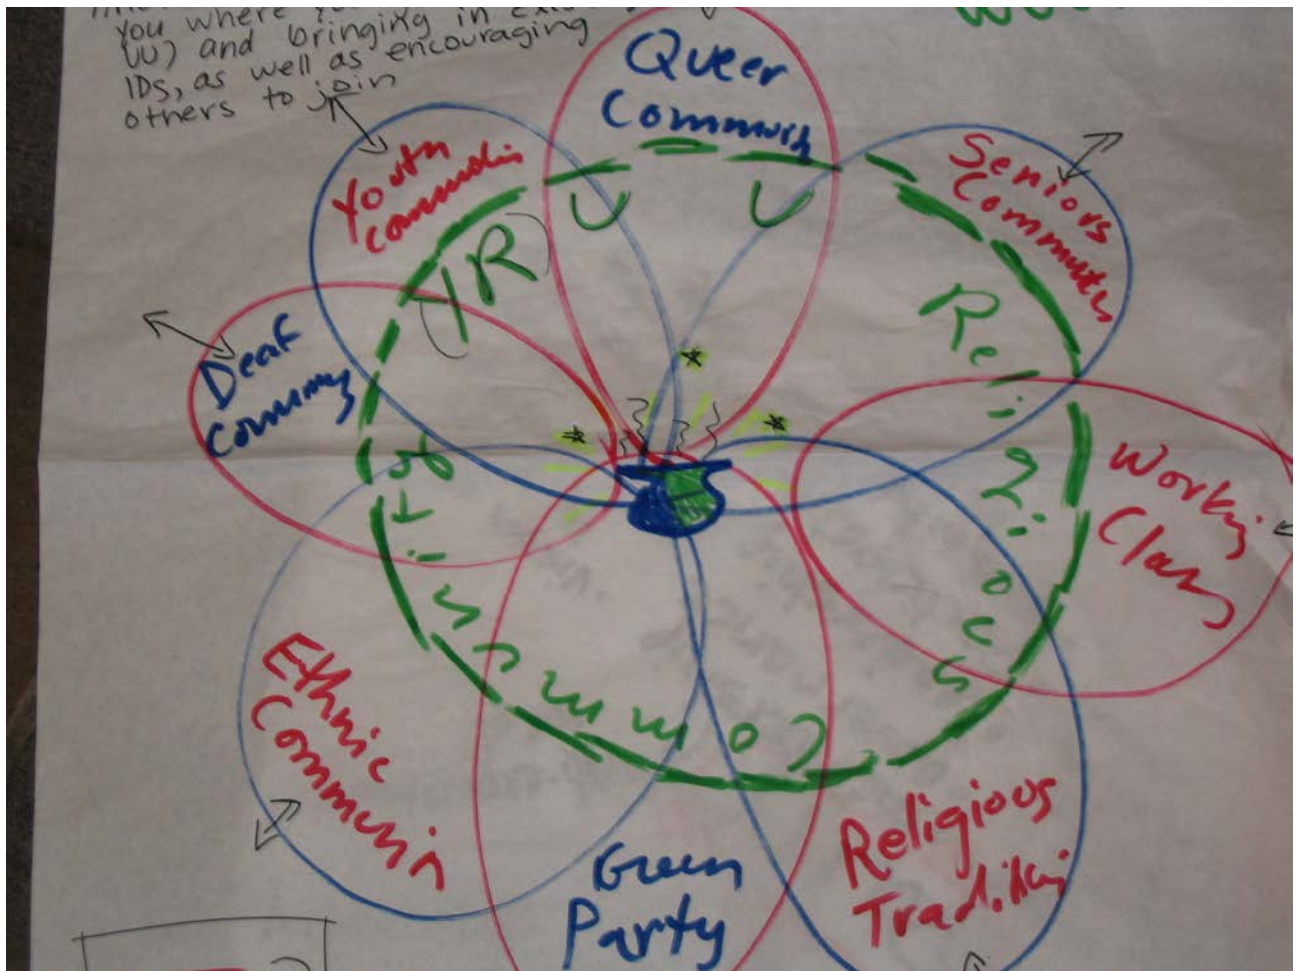 you where
UU) and bringing in
IDS, as well as encouraging
others to join
Queer
Community
Youth
Communities
Seniors
Community
Deaf
Community
(YR)
U U
Religious
Communities
Working
Class
Ethnic
Communities
Green
Party
Religious
Traditions